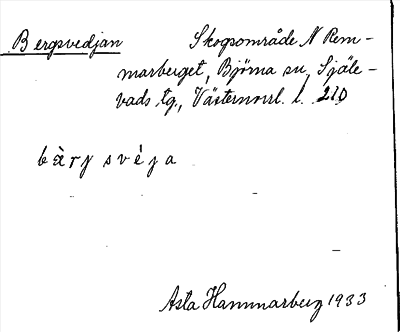 Bergsvedjan Skogsområde N Rem-
marberget, Björna sn, Själe-
vads tg., Västernorrl. l. 210
bàrj svéja
Asta Hammarberg 1933